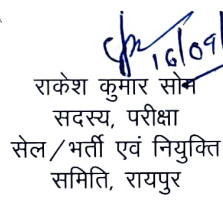 16/09/
राकेश कुमार सोन
सदस्य, परीक्षा
सेल/भर्ती एवं नियुक्ति
समिति, रायपुर